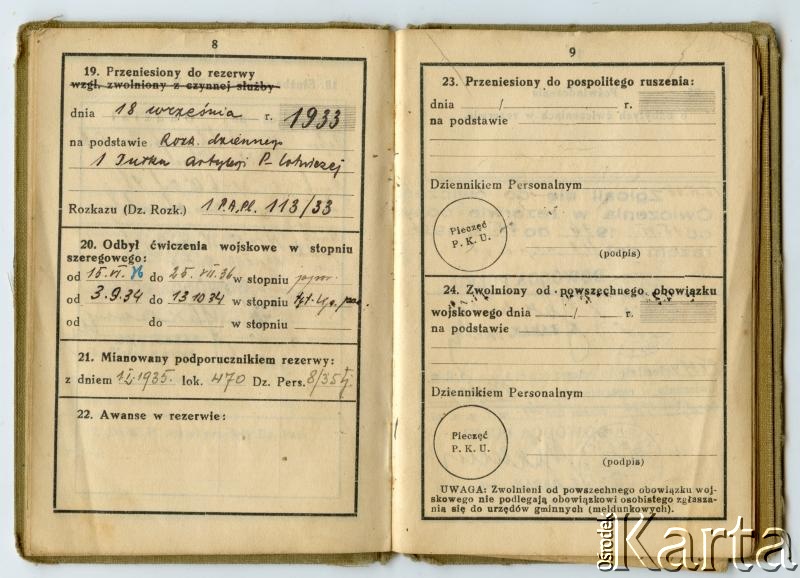 8
19. Przeniesiony do rezerwy
wzgl. zwolniony z czynnej służby
dnia 18 września r. 1933
na podstawie Rozk. dziennego
1 Pułku Artylerji P-lotniczej
Rozkazu (Dz. Rozk.) 1 P.A.Pl. 113/33
20. Odbył ćwiczenia wojskowe w stopniu
szeregowego:
od 15.VI.36 do 25.VII.36 w stopniu ppor.
od 3.9.34 do 13 10 34 w stopniu
od do w stopniu
21. Mianowany podporucznikiem rezerwy:
z dniem 1.I.1935. lok. 470 Dz. Pers. 8/35
22. Awanse w rezerwie:
9
23. Przeniesiony do pospolitego ruszenia:
dnia / r.
na podstawie
Dziennikiem Personalnym
Pieczęć
P. K. U.
(podpis)
24. Zwolniony od powszechnego obowiązku
wojskowego dnia / r.
na podstawie
Dziennikiem Personalnym
Pieczęć
P. K. U.
(podpis)
UWAGA: Zwolnieni od powszechnego obowiązku woj-
skowego nie podlegają obowiązkowi osobistego zgłasza-
nia się do urzędów gminnych (meldunkowych).
Ośrodek
Karta